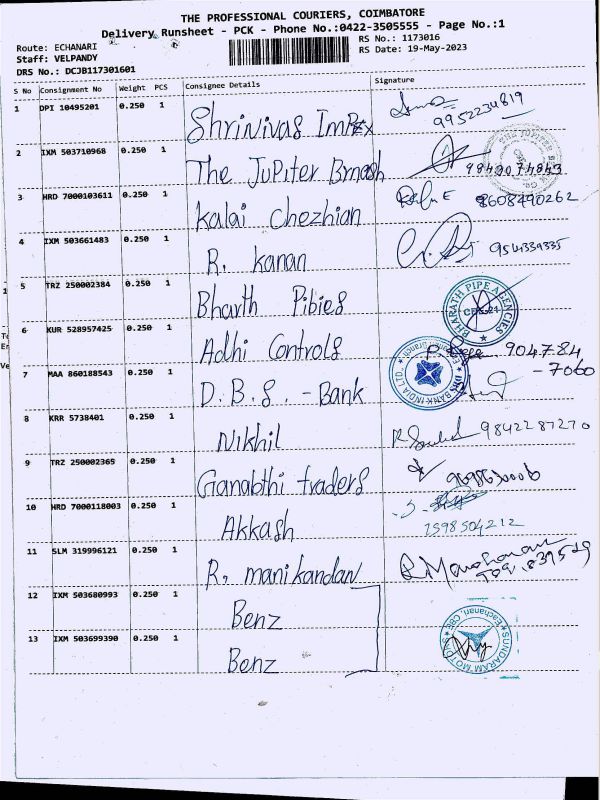 THE PROFESSIONAL COURIERS, COIMBATORE
Delivery Runsheet - PCK - Phone No.:0422-3505555 - Page No.:1
Route: ECHANARI
RS No.: 1173016
Staff: VELPANDY
RS Date: 19-May-2023
DRS No.: DCJB117301601
S No Consignment No Weight PCS Consignee Details Signature
1 DPI 10495201 0.250 1 Shrinivas Impex 9952234819
2 IXM 503710968 0.250 1 The JuPiter Brnash
3 HRD 7000103611 0.250 1 kalai chezhian 8608490262
4 IXM 503661483 0.250 1 R. kanan
5 TRZ 250002384 0.250 1 Bharth Pibies
BHARATH PIPE AGENCIES
6 KUR 528957425 0.250 1 Adhi Controls 904784
-7060
7 MAA 860188543 0.250 1 D.B.S. - Bank
DBS BANK INDIA LTD.,
8 KRR 5738401 0.250 1 Nikhil 9842287270
9 TRZ 250002365 0.250 1 Ganabthi traders
10 HRD 7000118003 0.250 1 Akkash
1598504212
11 SLM 319996121 0.250 1 R. manikandan
12 IXM 503680993 0.250 1 Benz
13 IXM 503699390 0.250 1 Benz
SUNDARAM MOTORS Eachanari, CBE